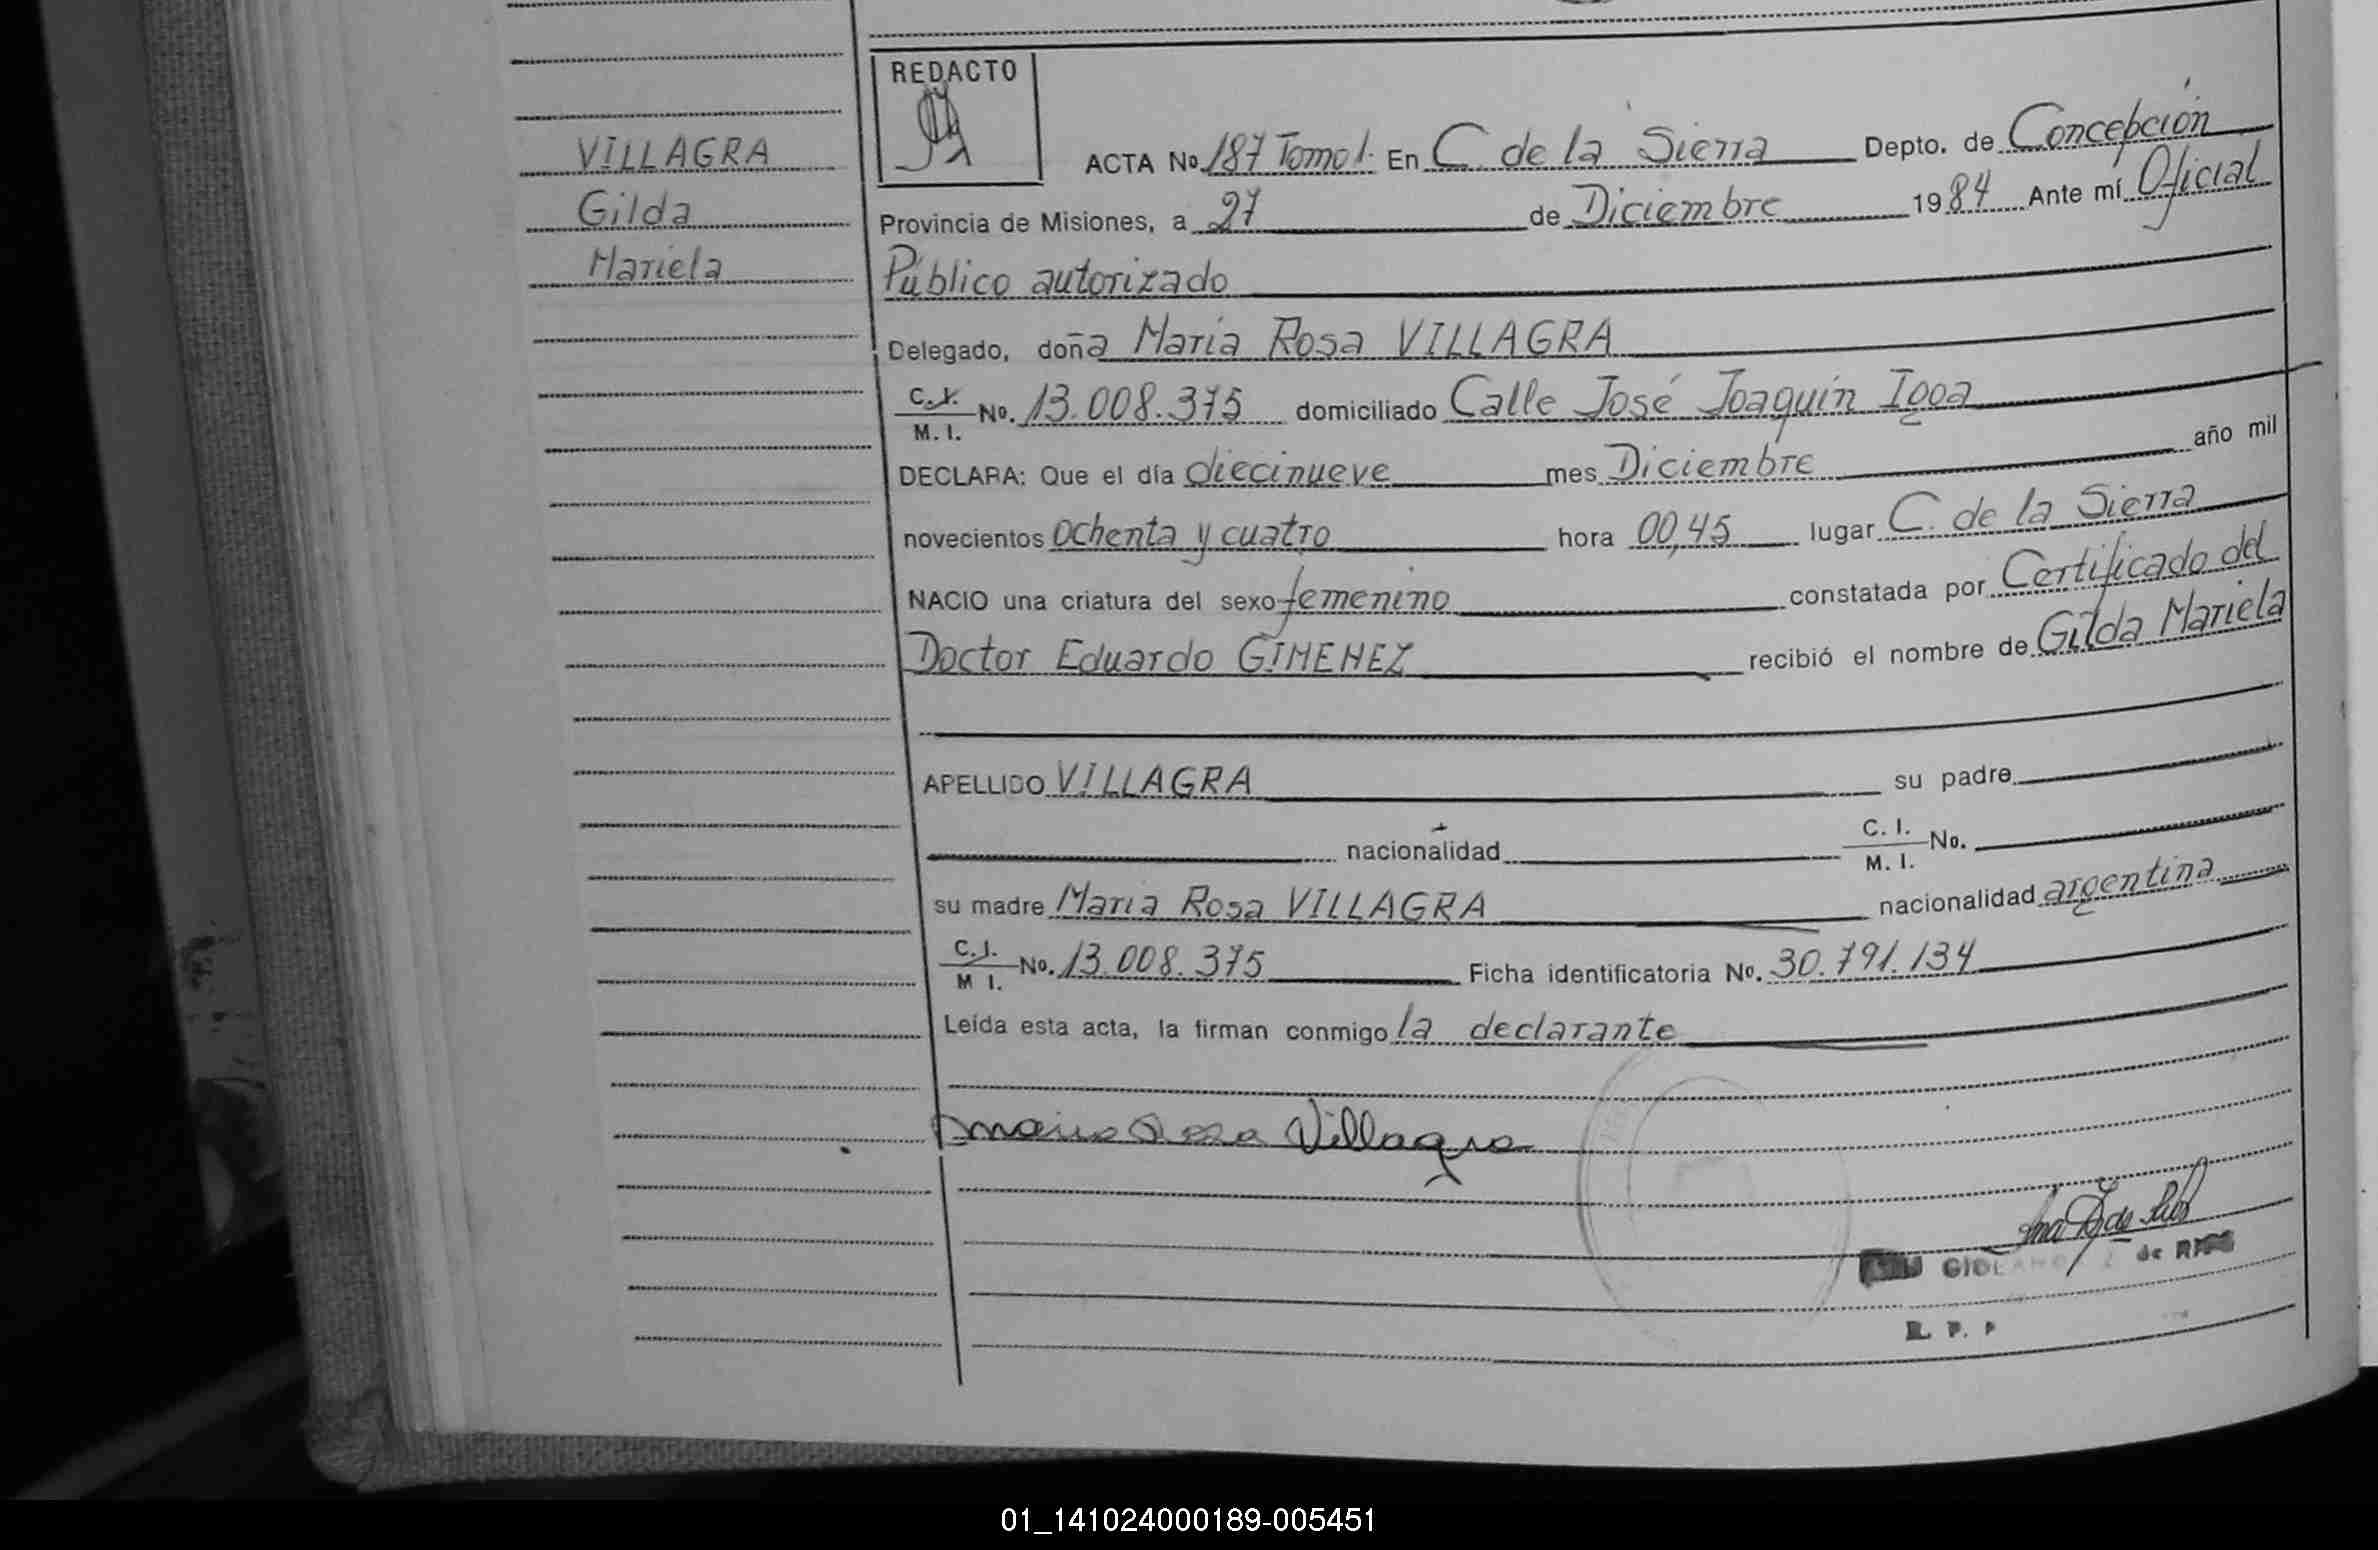 VILLAGRA
Gilda
Mariela
REDACTO
ACTA No 187 Tomo I. En C. de la Sierra Depto. de Concepción
Provincia de Misiones, a 27 de Diciembre 1984 Ante mí Oficial
Público autorizado
Delegado, doña María Rosa VILLAGRA
C.I. M.I. No. 13.008.375 domiciliado Calle José Joaquín Igoa
DECLARA: Que el día diecinueve mes Diciembre año mil
novecientos ochenta y cuatro hora 00,45 lugar C. de la Sierra
NACIO una criatura del sexo femenino constatada por Certificado del
Doctor Eduardo GIMENEZ recibió el nombre de Gilda Mariela
APELLIDO VILLAGRA su padre
nacionalidad C. I. M. I. No.
su madre María Rosa VILLAGRA nacionalidad argentina
C.I. M I. No. 13.008.375 Ficha identificatoria No. 30.791.134
Leída esta acta, la firman conmigo la declarante
Maria Rosa Villagra
de RIOS
R. P. P
01_141024000189-005451